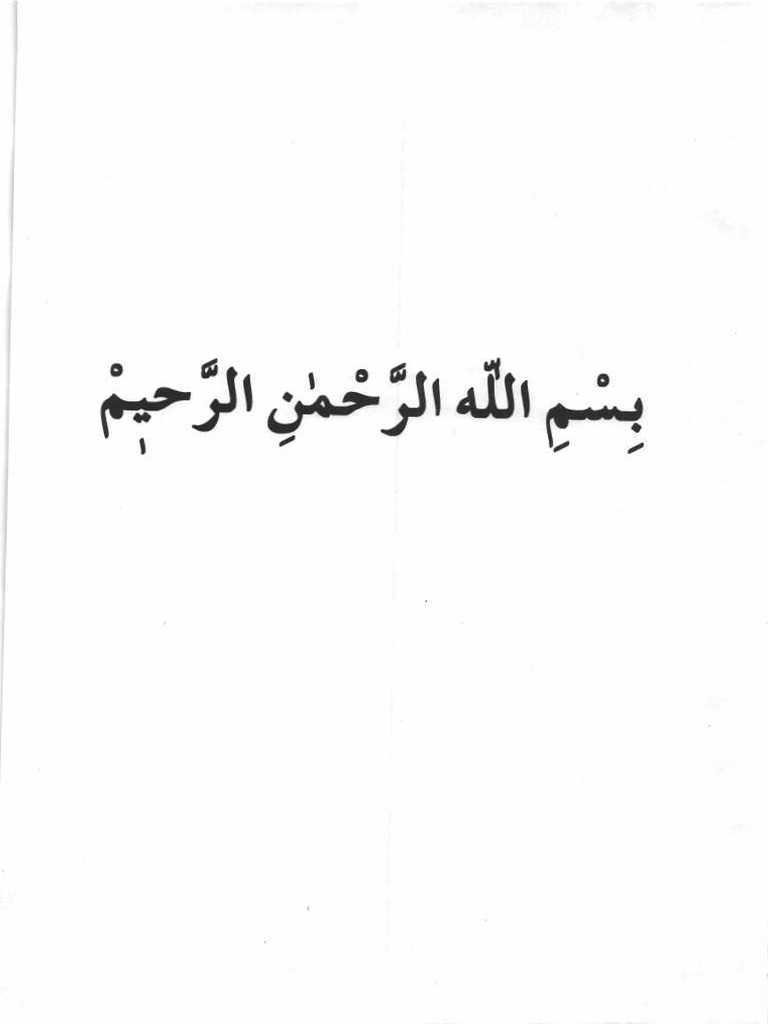 بِسْمِ اللّٰه الرَّحْمٰنِ الرَّحیٖمْ